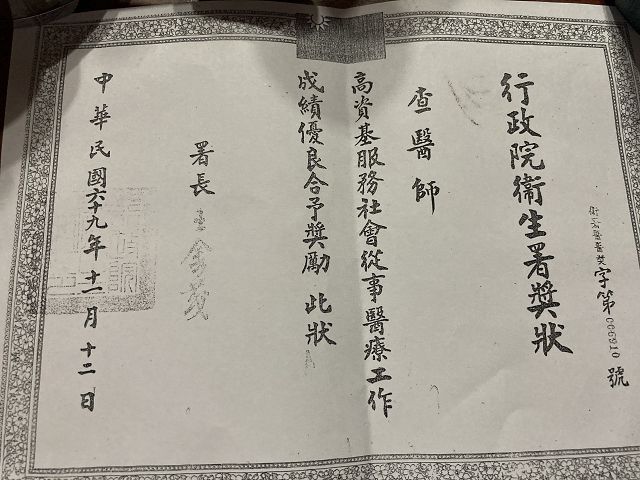 行政院衛生署獎狀
字第006910號
查醫師
高資基服務社會從事醫療工作
成績優良合予獎勵 此狀
署長王金茂
中華民國六十九年十一月十二日